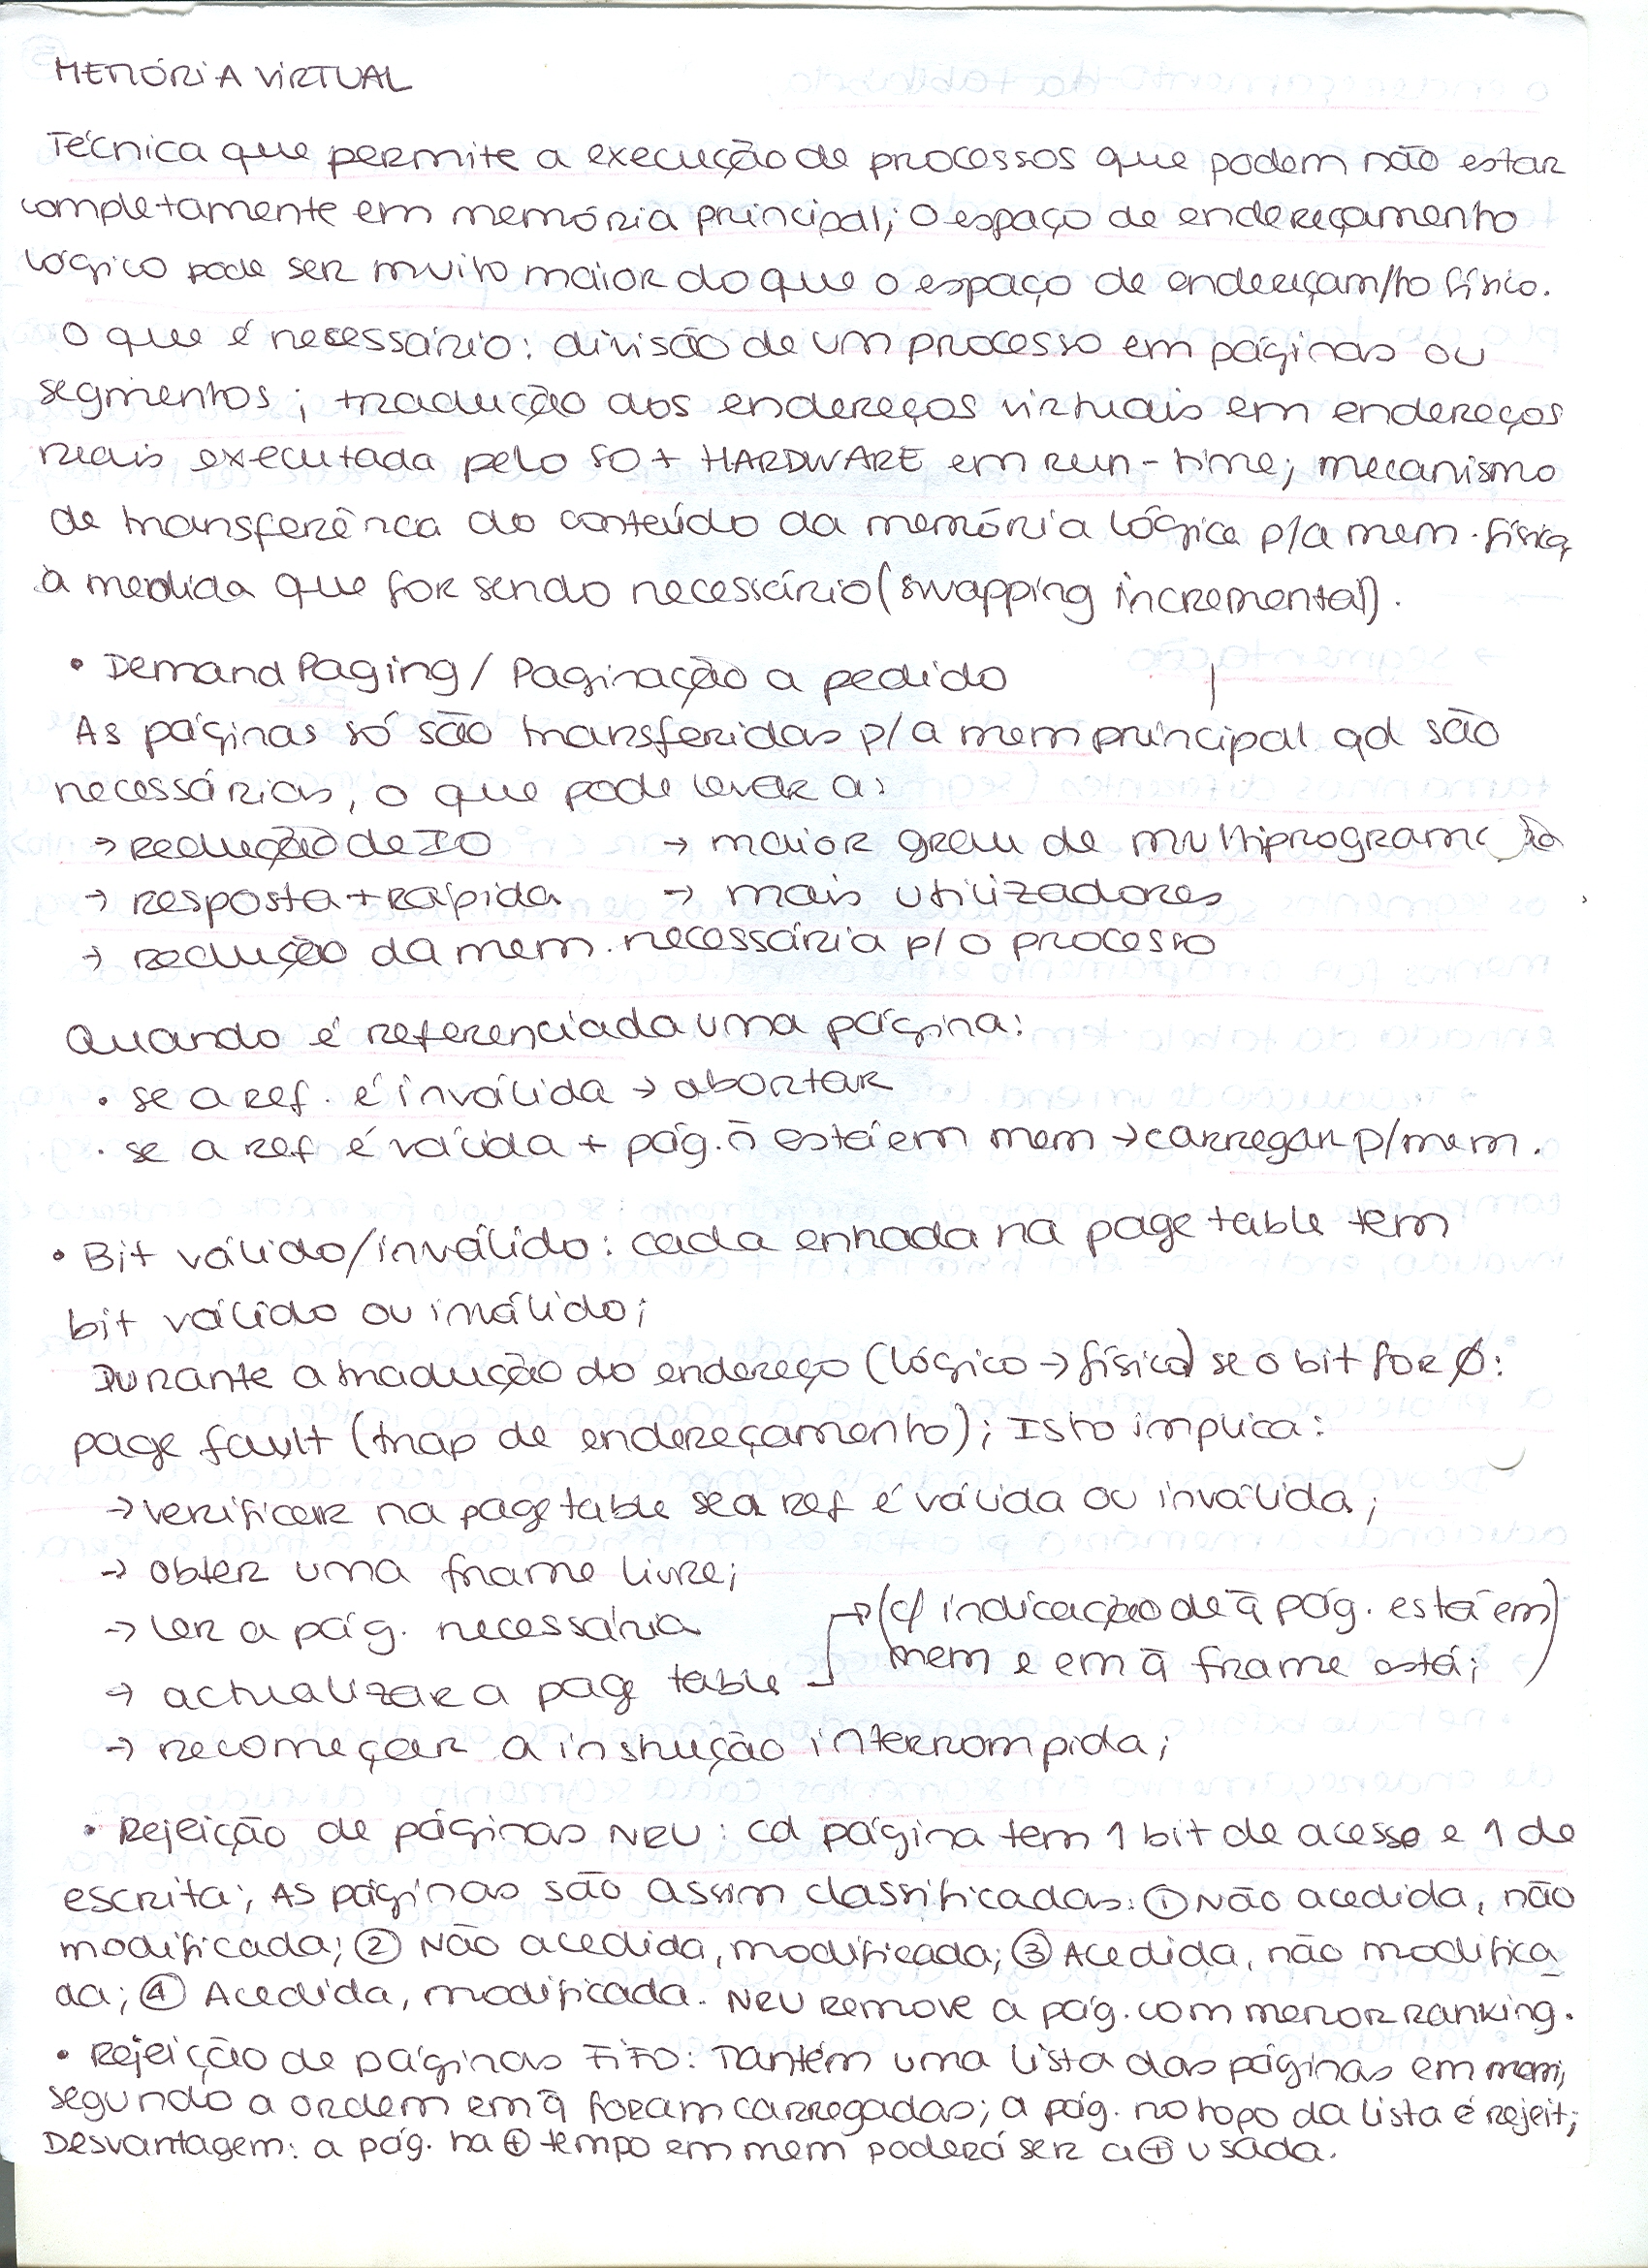 MEMÓRIA VIRTUAL
Técnica que permite a execução de processos que podem não estar
completamente em memória principal; O espaço de endereçamento
lógico pode ser muito maior do que o espaço de endereçam/to físico.
O que é necessário: divisão de um processo em páginas ou
segmentos; tradução dos endereços virtuais em endereços
reais executada pelo SO + HARDWARE em run-time; mecanismo
de transferência do conteúdo da memória lógica p/a mem. física
à medida que for sendo necessário (swapping incremental).
• Demand Paging / Paginação a pedido
As páginas só são transferidas p/ a mem principal qd são
necessárias, o que pode levar a:
→ redução de IO → maior grau de multiprogramação
→ resposta + rápida → mais utilizadores
→ redução da mem. necessária p/ o processo
Quando é referenciada uma página:
• se a ref. é inválida → abortar
• se a ref é válida + pág. ñ está em mem → carregar p/ mem.
• Bit válido/inválido: cada entrada na page table tem
bit válido ou inválido;
Durante a tradução do endereço (lógico → físico) se o bit for Ø:
page fault (trap de endereçamento); Isto implica:
→ verificar na page table se a ref é válida ou inválida;
→ obter uma frame livre;
→ ler a pág. necessária
→ actualizar a page table → (c/ indicação de q̄ pág. está em
mem e em q̄ frame está;)
→ recomeçar a instrução interrompida;
• Rejeição de páginas NRU: cd página tem 1 bit de acesso e 1 de
escrita; As páginas são assim classificadas: ① Não acedida, não
modificada; ② Não acedida, modificada; ③ Acedida, não modifica_
da; ④ Acedida, modificada. NRU remove a pág. com menor ranking.
• Rejeição de páginas FIFO: Mantém uma lista das páginas em mem,
segundo a ordem em q̄ foram carregadas; a pág. no topo da lista é rejeit;
Desvantagem: a pág. há ⊕ tempo em mem poderá ser a ⊕ usada.